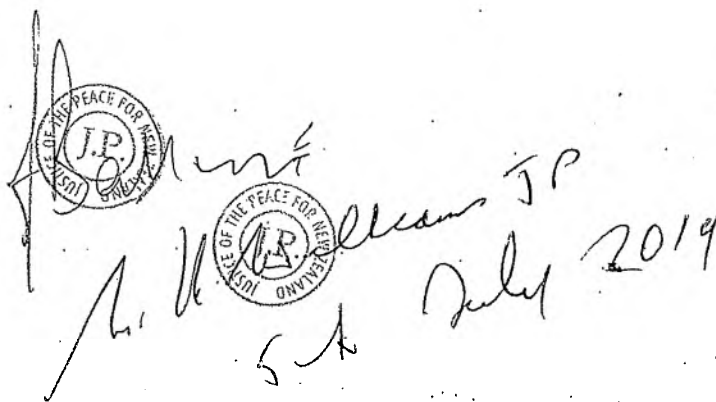 JUSTICE OF THE PEACE FOR NEW ZEALAND
J.P.
JUSTICE OF THE PEACE FOR NEW ZEALAND
J.P.
Williams JP
5th July 2019